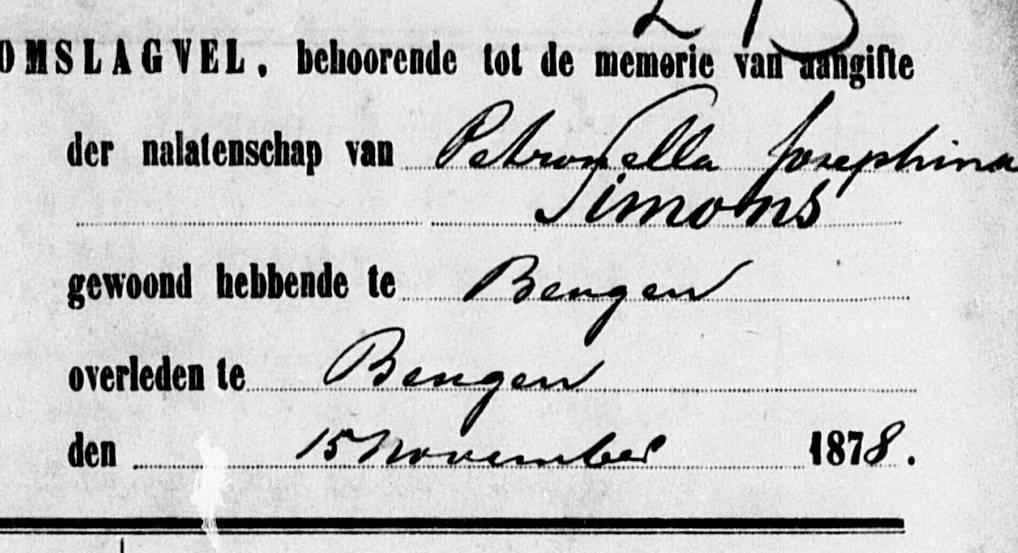 OMSLAGVEL, behoorende tot de memorie van aangifte
der nalatenschap van Petronella Josephina
Simons
gewoond hebbende te Beugen
overleden te Beugen
den 15 November 1878.